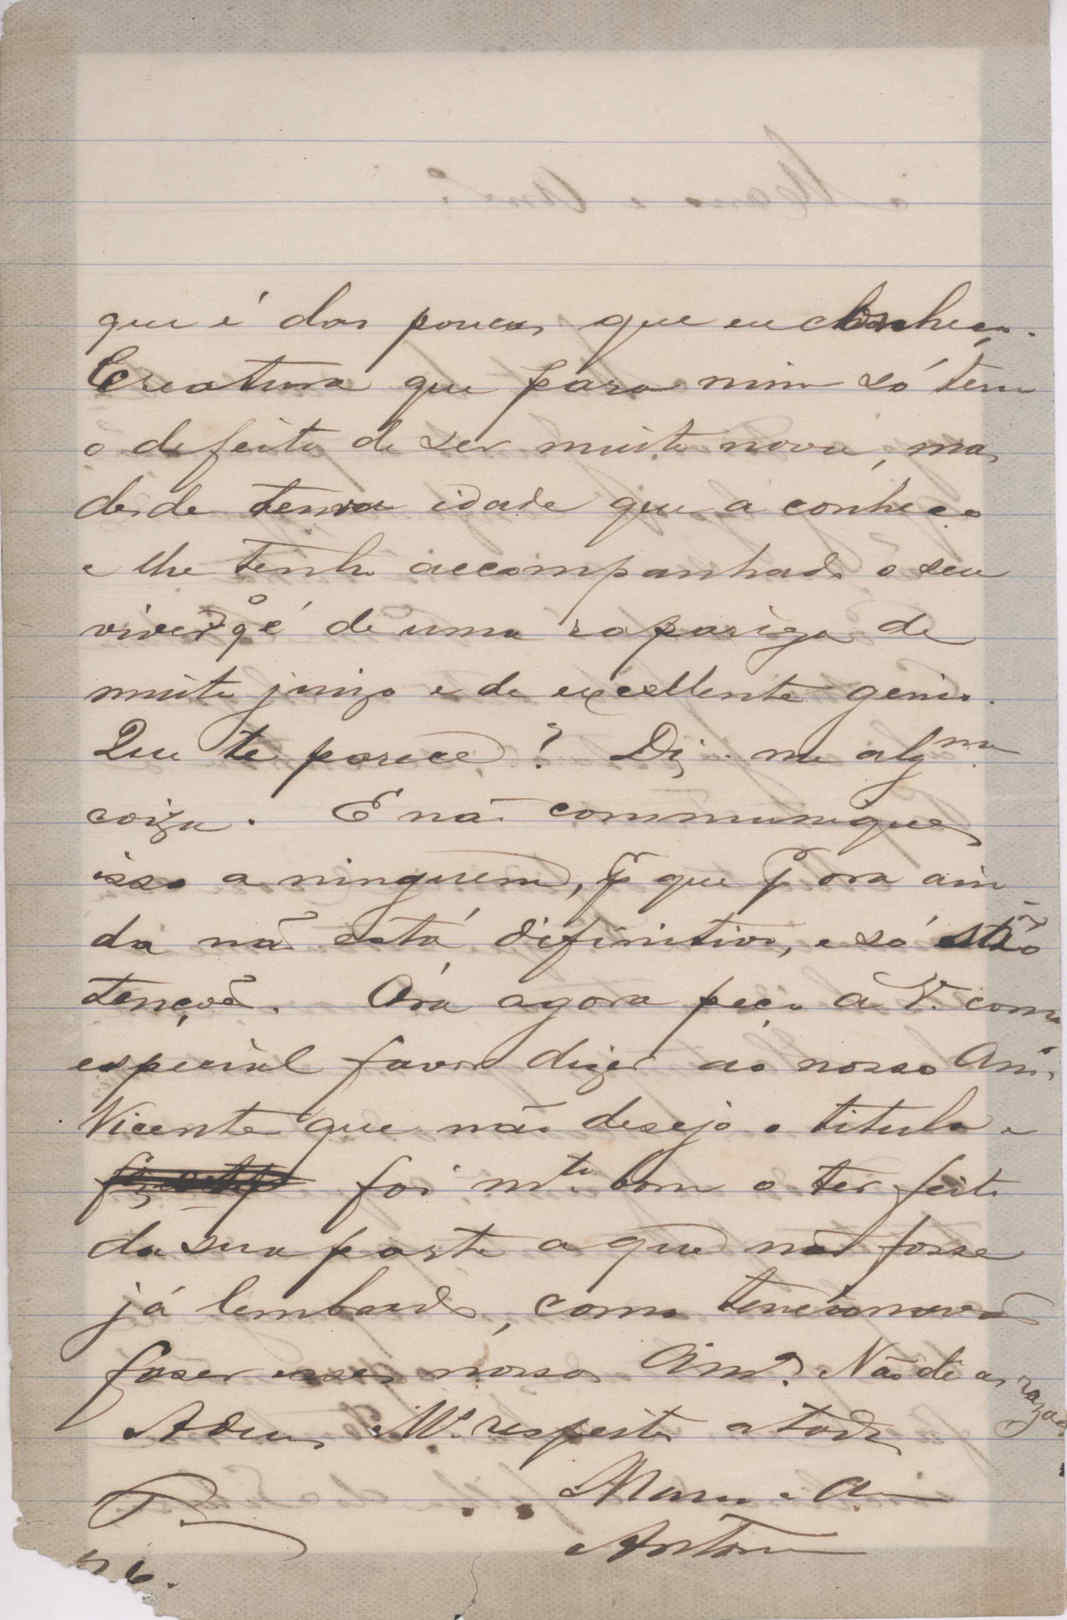 que é das poucas que eu conheço.
Creatura que para mim só tem
o defeito de ser muito nova, mas
desde tenra idade que a conheço
e lhe tenho accompanhado o seu
viver q é de uma rapariga de
muito juizo e de excellente genio.
Que te parece? Diz-me algma
coiza. E não communiques
isso a ninguem, p que p ora ain
da não está difinitivo, e só são
tenções. Óra agora peço a V. como
especial favor dizer ao nosso Amo
Vicente que não desejo o titulo e
foi mto bom o ter feito
da sua parte a que não fosse
já lembrado, como tencionavão
faser esses nossos Amos. Não dê as razões
Adeus. Ms respeitos a todos
Mano e A
Antonio
P.
26.